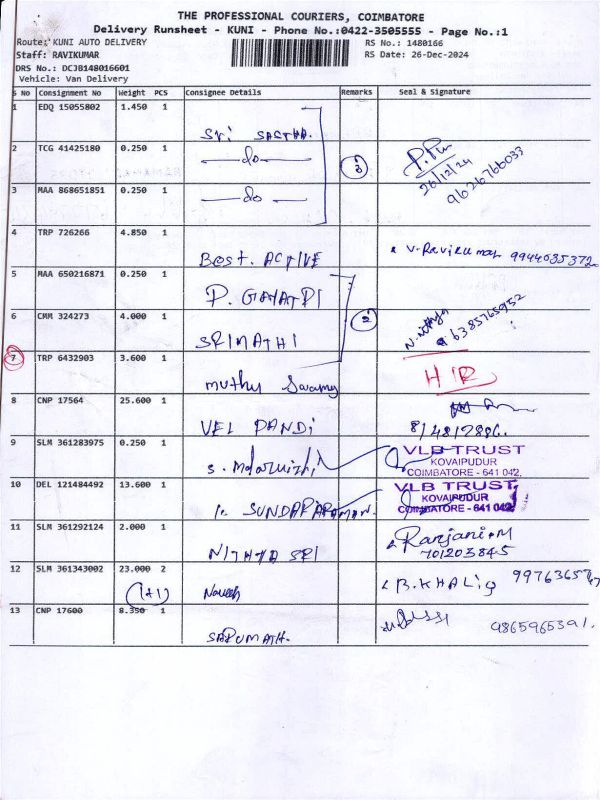 THE PROFESSIONAL COURIERS, COIMBATORE
Delivery Runsheet - KUNI - Phone No.:0422-3505555 - Page No.:1
Route: KUNI AUTO DELIVERY RS No.: 1480166
Staff: RAVIKUMAR RS Date: 26-Dec-2024
DRS No.: DCJB148016601
Vehicle: Van Delivery
S No Consignment No Weight PCS Consignee Details Remarks Seal & Signature
1 EDQ 15055802 1.450 1 Sri SASTHA.
2 TCG 41425180 0.250 1 do 3 26/12/24 9626766033
3 MAA 868651851 0.250 1 do
4 TRP 726266 4.850 1 Best. ACTIVE V. Ravikumar 9944035372
5 MAA 650216871 0.250 1 P. GAYATRI
6 CMM 324273 4.000 1 SRIMATHI 2 N. nithya 6385765952
7 TRP 6432903 3.600 1 muthu Swamy H/R
8 CNP 17564 25.600 1 VEL PANDI
9 SLM 361283975 0.250 1 VLB TRUST
KOVAIPUDUR
COIMBATORE - 641 042.
10 DEL 121484492 13.600 1 SUNDARARAMAN. VLB TRUST
KOVAIPUDUR
COIMBATORE - 641 042
11 SLM 361292124 2.000 1 NITHYA SRI Ranjani.M
701203845
12 SLM 361343002 23.000 2 (1+1) Naresh B. KHALIQ
13 CNP 17600 8.350 1 SARUMATH. 9865965391.